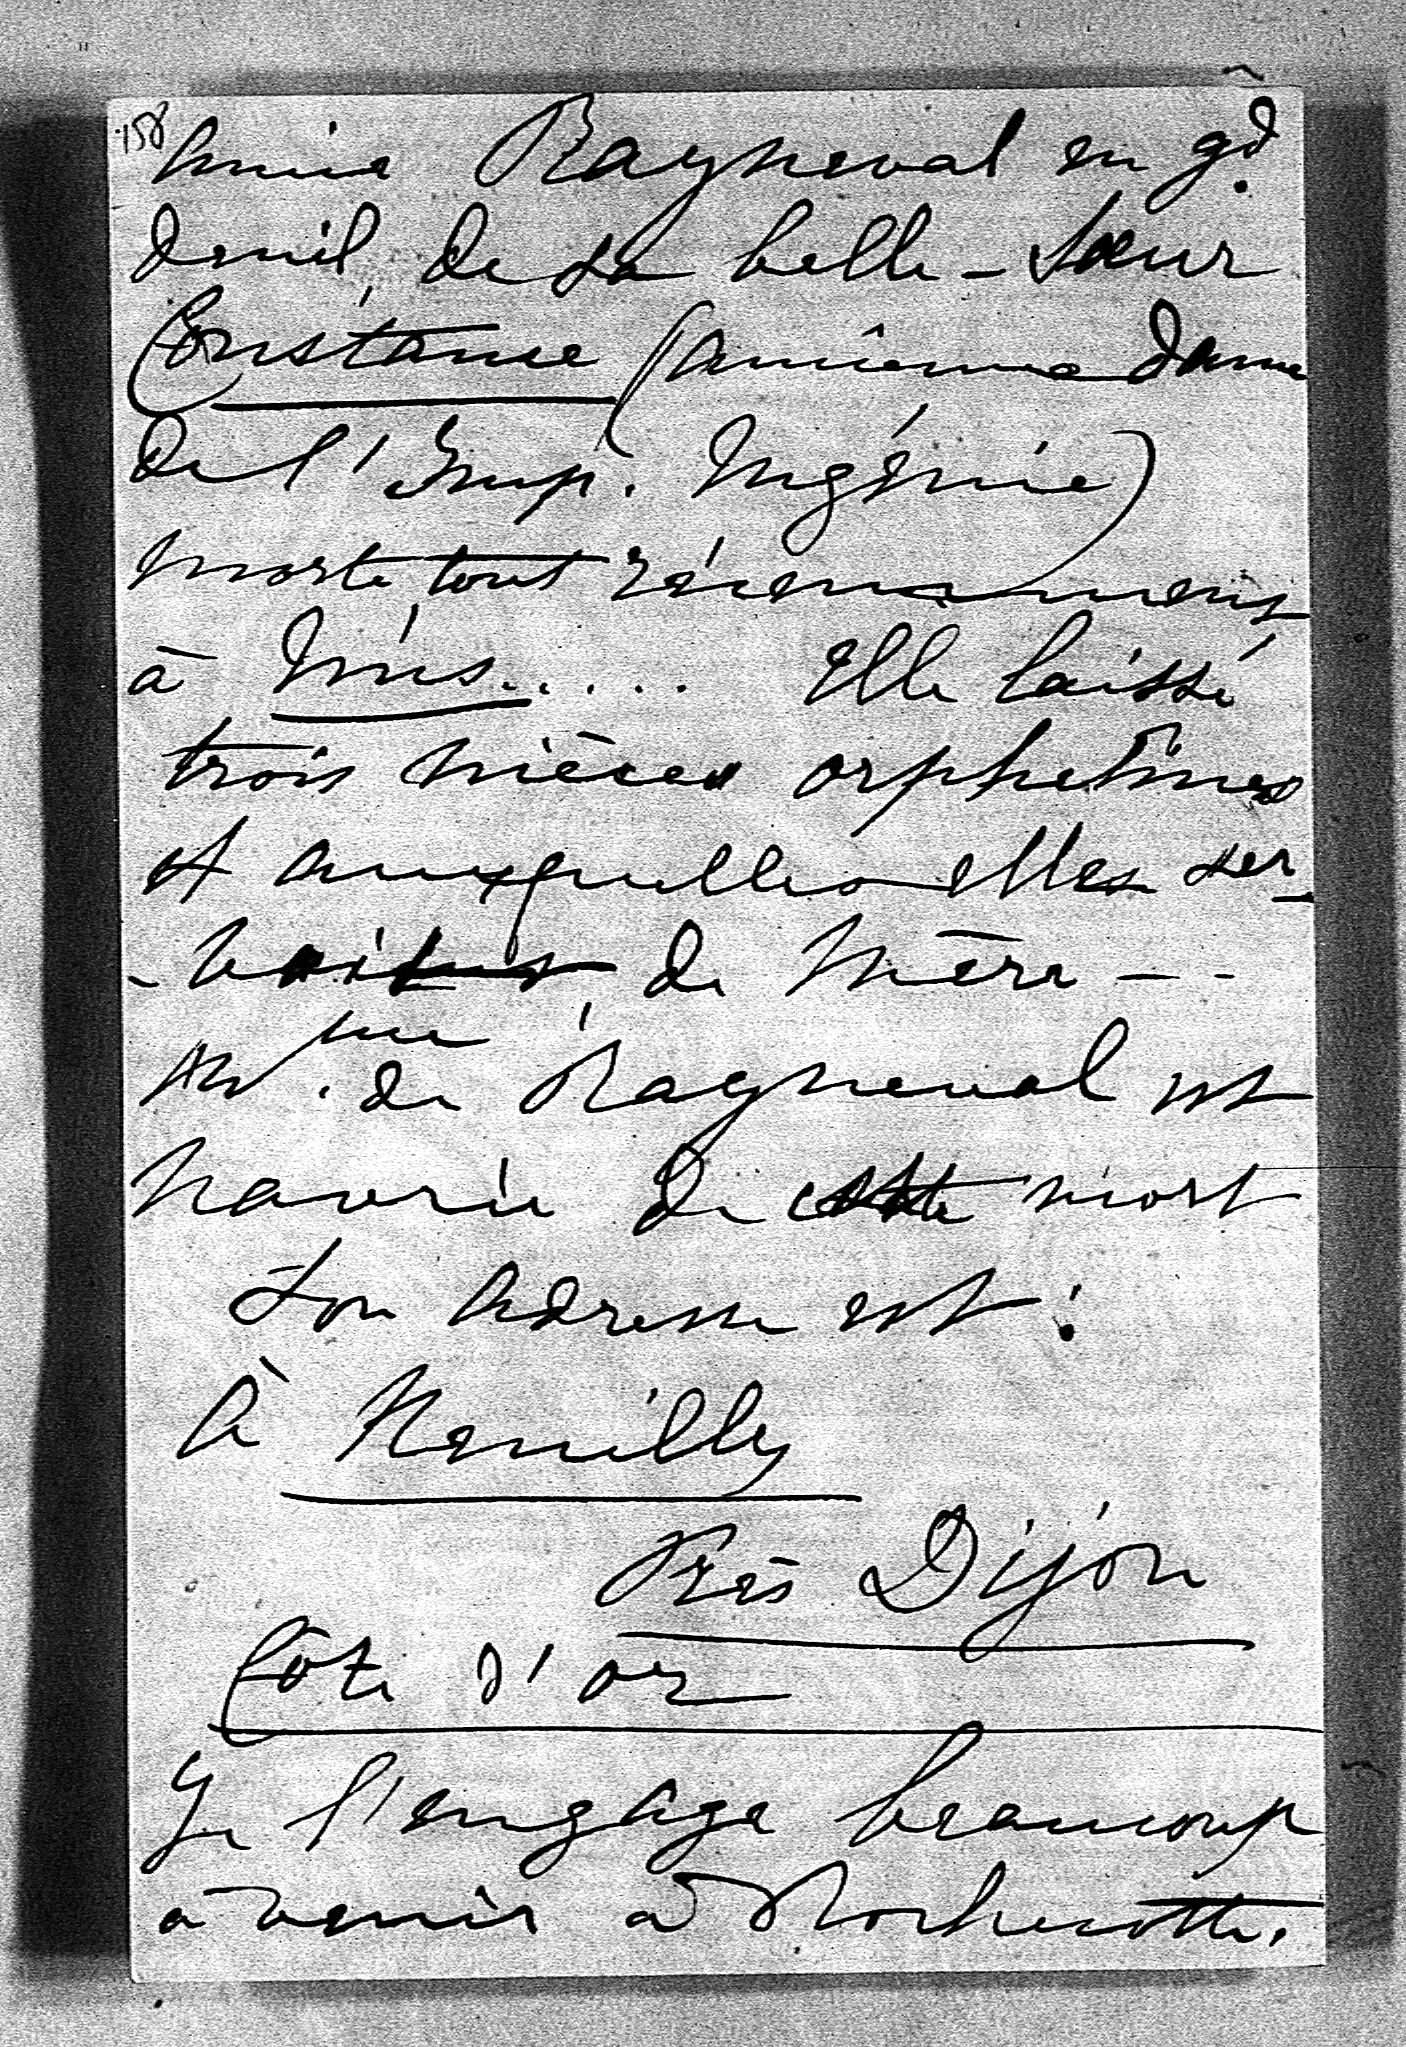 158
Annie Rayneval en gd.
deuil de sa belle-sœur
Constance (ancienne dame
de l'Imp. Eugénie)
morte tout récemment
à
Elle laisse
trois nièces orphelines
et auxquelles elles ser
-vaient de mère - - -
Mme. de Rayneval est
navrée de cette mort
Son adresse est :
à Neuilly
Près Dijon
Côte d'or
Je l'engage beaucoup
à venir à Rochecotte.